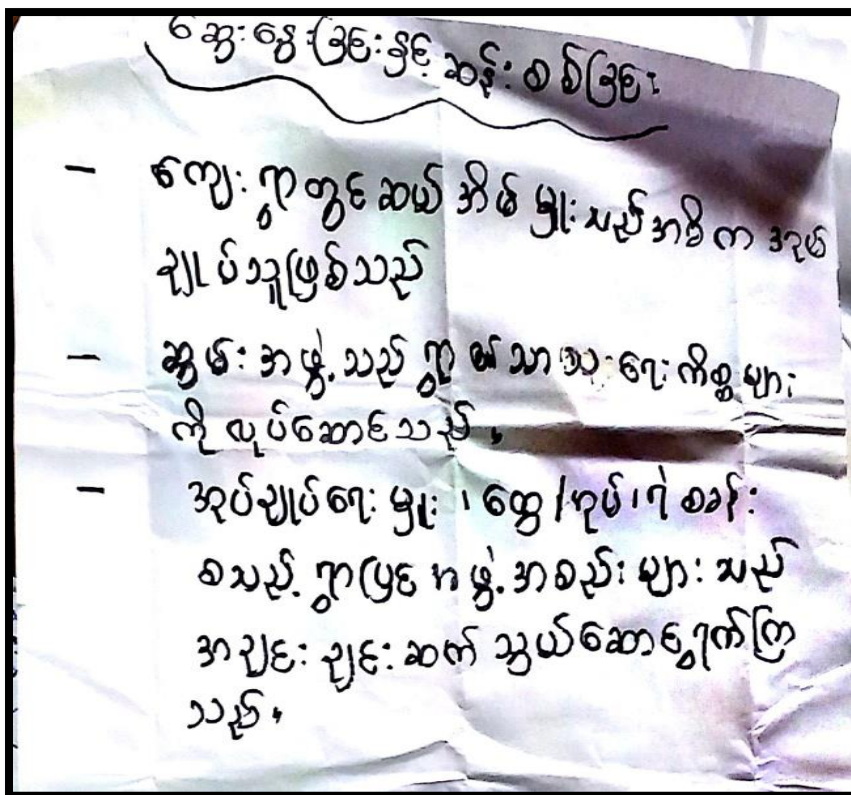 ဆွေးနွေးခြင်းနှင့် ဆန်းစစ်ခြင်း
- ကျေးရွာတွင် ဆယ်အိမ်မှူးသည် အဓိက အုပ်
ချုပ်သူဖြစ်သည်
- ဆွမ်းအဖွဲ့သည် ရွာ၏ သာသာရေးကိစ္စများ
ကို လုပ်ဆောင်သည်။
- အုပ်ချုပ်ရေးမှူး၊ ထွေ/အုပ်၊ ရဲစခန်း
စသည့် ရွာပြင်အဖွဲ့အစည်းများသည်
အချင်းချင်း ဆက်သွယ်ဆောင်ရွက်ကြ
သည်။